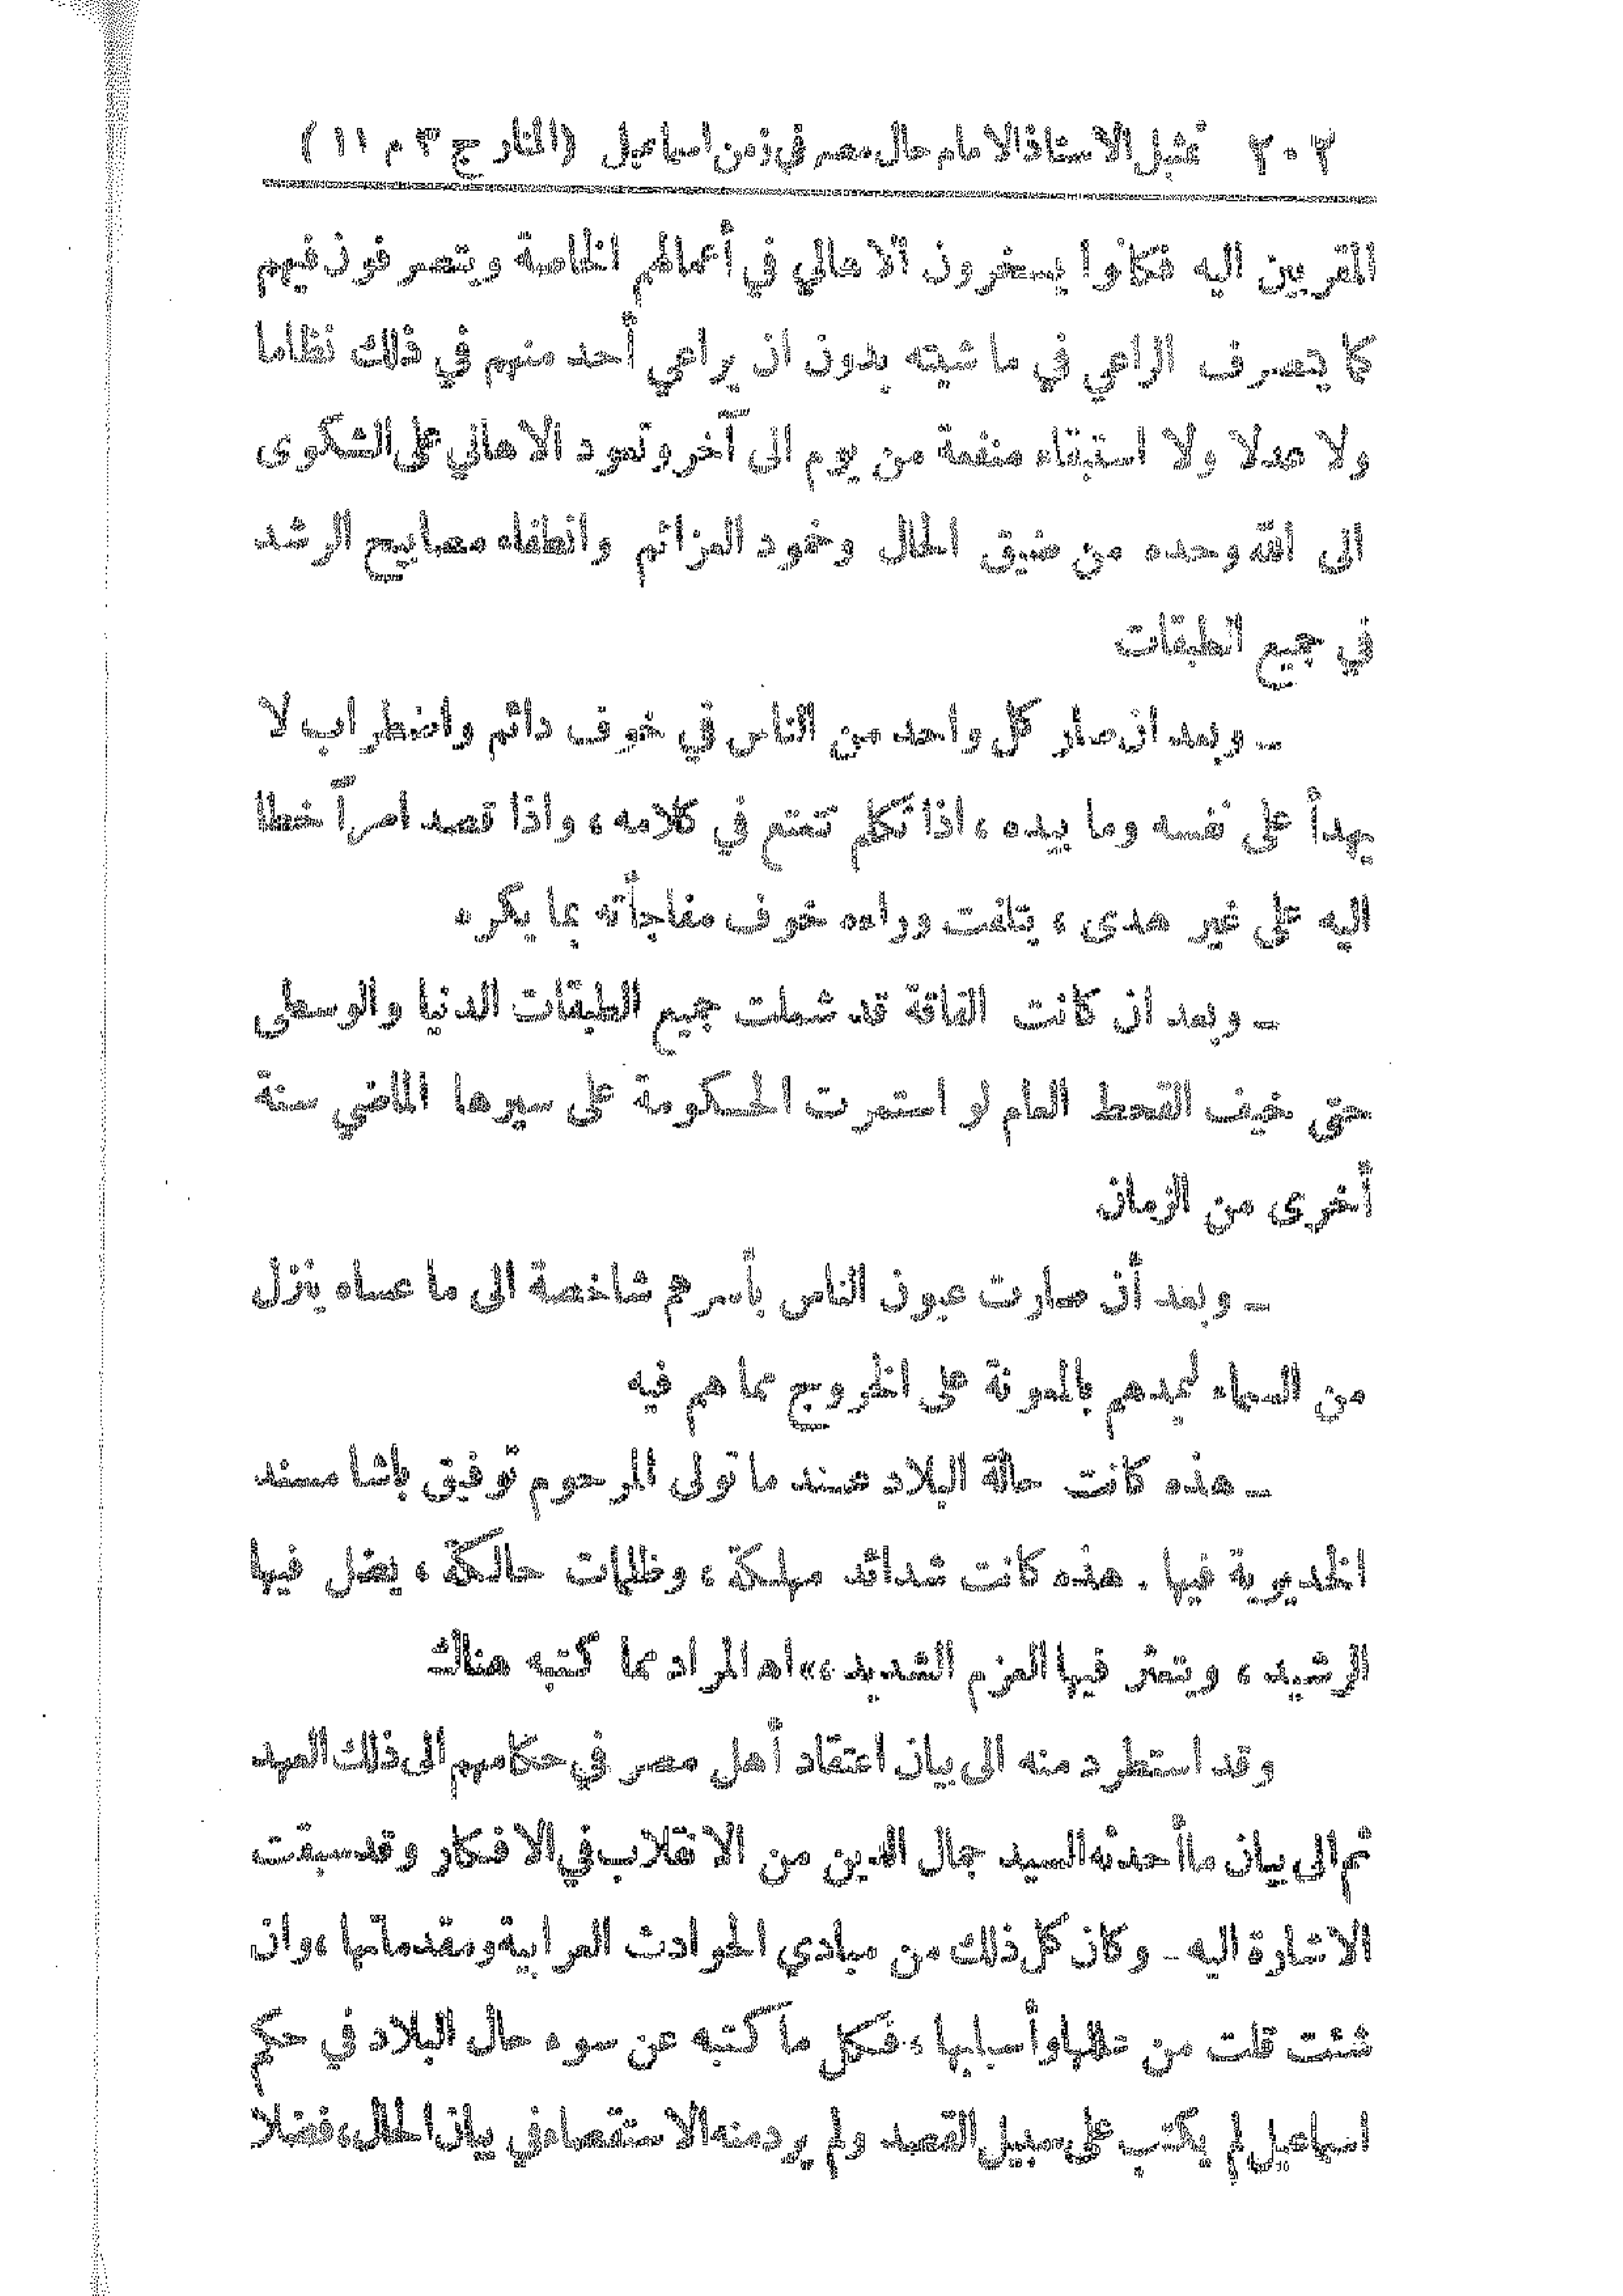 ٢٠٢ تمثيل الاستاذ الامام حال مصر في زمن اسماعيل (المنار ج ٣ م ١١)
المقربين اليه فكانوا يسخرون الاهالي في أعمالهم الخاصة ويتصرفون فيهم
كما يتصرف الراعي في ماشيته بدون ان يراعي أحد منهم في ذلك نظاما
ولا عدلا ولا استبقاء منفعة من يوم الى آخر وتعود الاهالي على الشكوى
الى الله وحده من ضيق الحال وخمود العزائم وانطفاء مصابيح الرشد
في جميع الطبقات
ـ وبعد ان صار كل واحد من الناس في خوف دائم واضطراب لا
يهدأ على نفسه وما بيده ، اذا تكلم تعتع في كلامه ، واذا قصد امراً خطا
اليه على غير هدى ، يتلفت وراءه خوف مفاجأته بما يكره
ـ وبعد ان كانت الفاقة قد شملت جميع الطبقات الدنيا والوسطى
حتى خيف القحط العام لو استمرت الحكومة على سيرها الماضي سنة
أخرى من الزمان
ـ وبعد أن صارت عيون الناس بأسرهم شاخصة الى ما عساه ينزل
من السماء ليمدهم بالمعونة على الخروج مما هم فيه
ـ هذه كانت حالة البلاد عند ما تولى المرحوم توفيق باشا مسند
الخديوية فيها . هذه كانت شدائد مهلكة ، وظلمات حالكة ، يضل فيها
الرشيد ، ويتعثر فيها العزم الشديد ،» اهـ المراد مما كتبه هناك
وقد استطرد منه الى بيان اعتقاد أهل مصر في حكامهم الى ذلك العهد
ثم الى بيان ما أحدثه السيد جمال الدين من الانقلاب في الافكار وقد سبقت
الاشارة اليه ـ وكان كل ذلك من مبادي الحوادث العرابية ومقدماتها ، وان
شئت قلت من عللها وأسبابها ، فكل ما كتبه عن سوء حال البلاد في حكم
اسماعيل لم يكتب على سبيل القصد ولم يرد منه الاستقصاء في بيان الحال ، فضلا